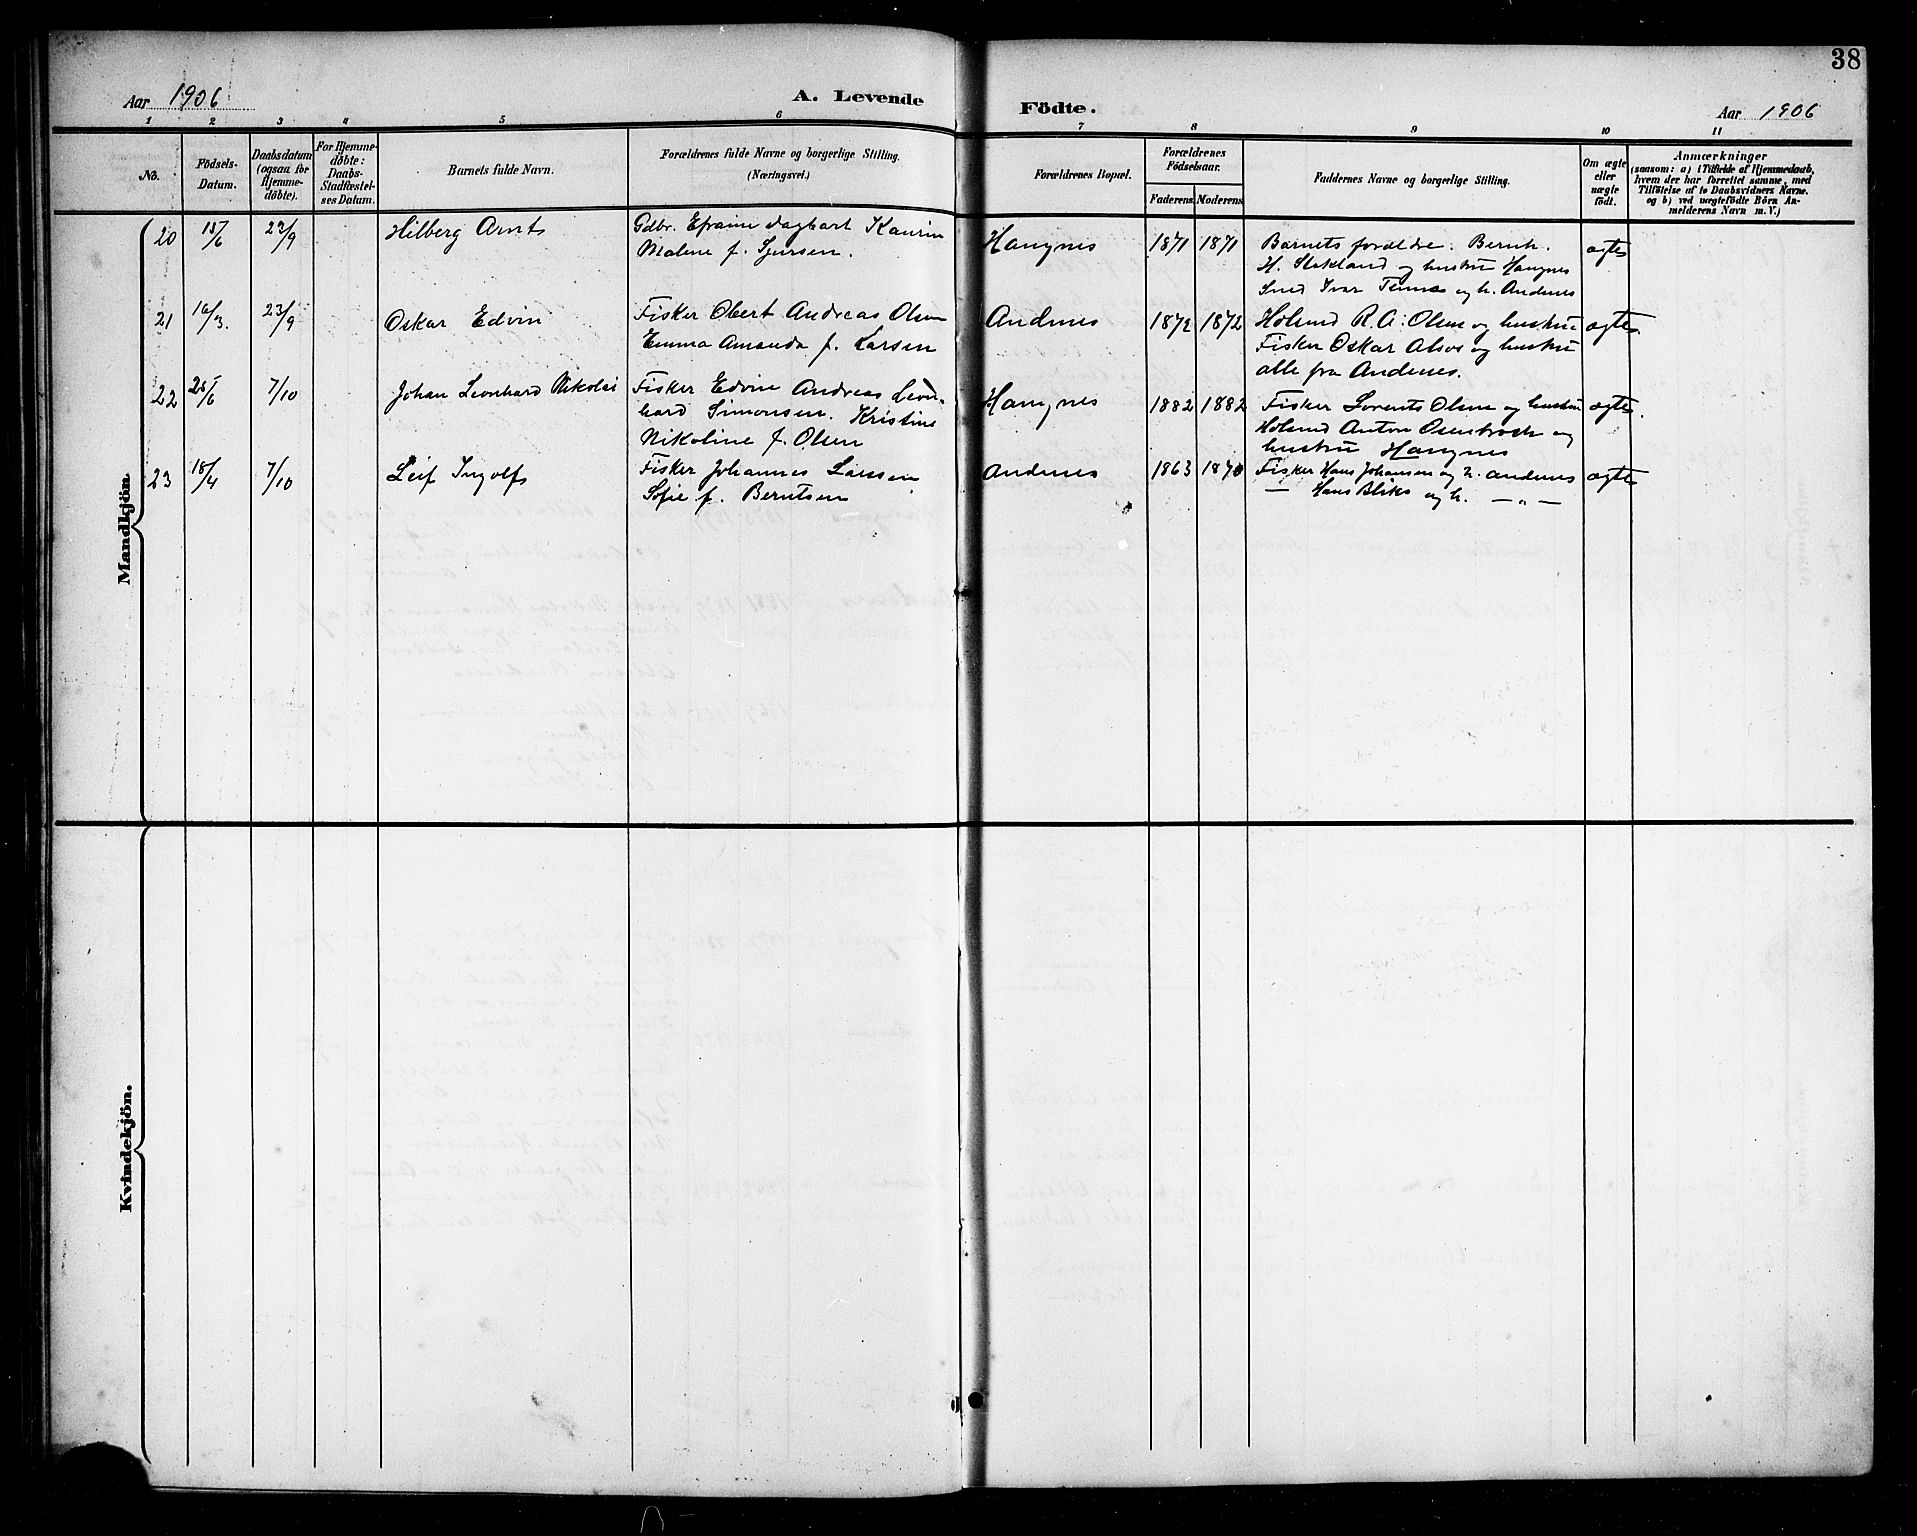 38
Aar 1906
A. Levende
Födte.
Aar 1906
1 2 3 4 5 6 7 8 9 10 11
No.
Födsels-
Datum.
Daabsdatum
(ogsaa for
Hjemme-
döbte).
For Hjemme-
döbte:
Daabs-
Stadfæstel-
ses Datum.
Barnets fulde Navn.
Forældrenes fulde Navne og borgerlige Stilling.
(Næringsvei.)
Forældrenes Bopæl.
Forældrenes
Födselsaar.
Faderens.
Moderens.
Faddernes Navne og borgerlige Stilling.
Om ægte
eller
uægte
födt.
Anmærkninger
(saasom: a) i Tilfælde af Hjemmedaab,
hvem der har forrettet samme, med
Tilföielse af to Daabsvidners Navne,
og b) ved uægtefödte Börn An-
melderens Navn m. V.)
Mandkjön.
20 15/6 23/9 Hilberg Arnt
Gdbr. Efraim Dagbart Kaurin
Malene f. Sjursen.
Haugnes 1871 1871
Barnets forældre. Bernh.
H. Stokland og hustru Haugnes
Smed Ivar og h. Andenes
ægte
21 16/3. 23/9 Oskar Edvin
Fisker Obert Andreas Olsen
Emma Amanda f. Larsen
Andenes 1872 1872
Holsund R. A. Olsen og hustru
Fisker Oskar og hustru
alle fra Andenes.
ægte.
22 25/6 7/10 Johan Leonhard Nikolai
Fisker Edvin Andreas Leon-
hard Simonsen. Kristine
Nikoline f. Olsen
Haugnes 1882 1882
Fisker Lorents Olsen og hustru
Holsund Anton og
hustru Haugnes
ægte.
23 18/4 7/10 Leif Ingolf
Fisker Johannes Larssen
Sofie f. Berntsen
Andenes 1863 1870
Fisker Hans Johansen og h. Andenes
— Hans Bliks og h. — „ —
ægte
Kvindekjön.